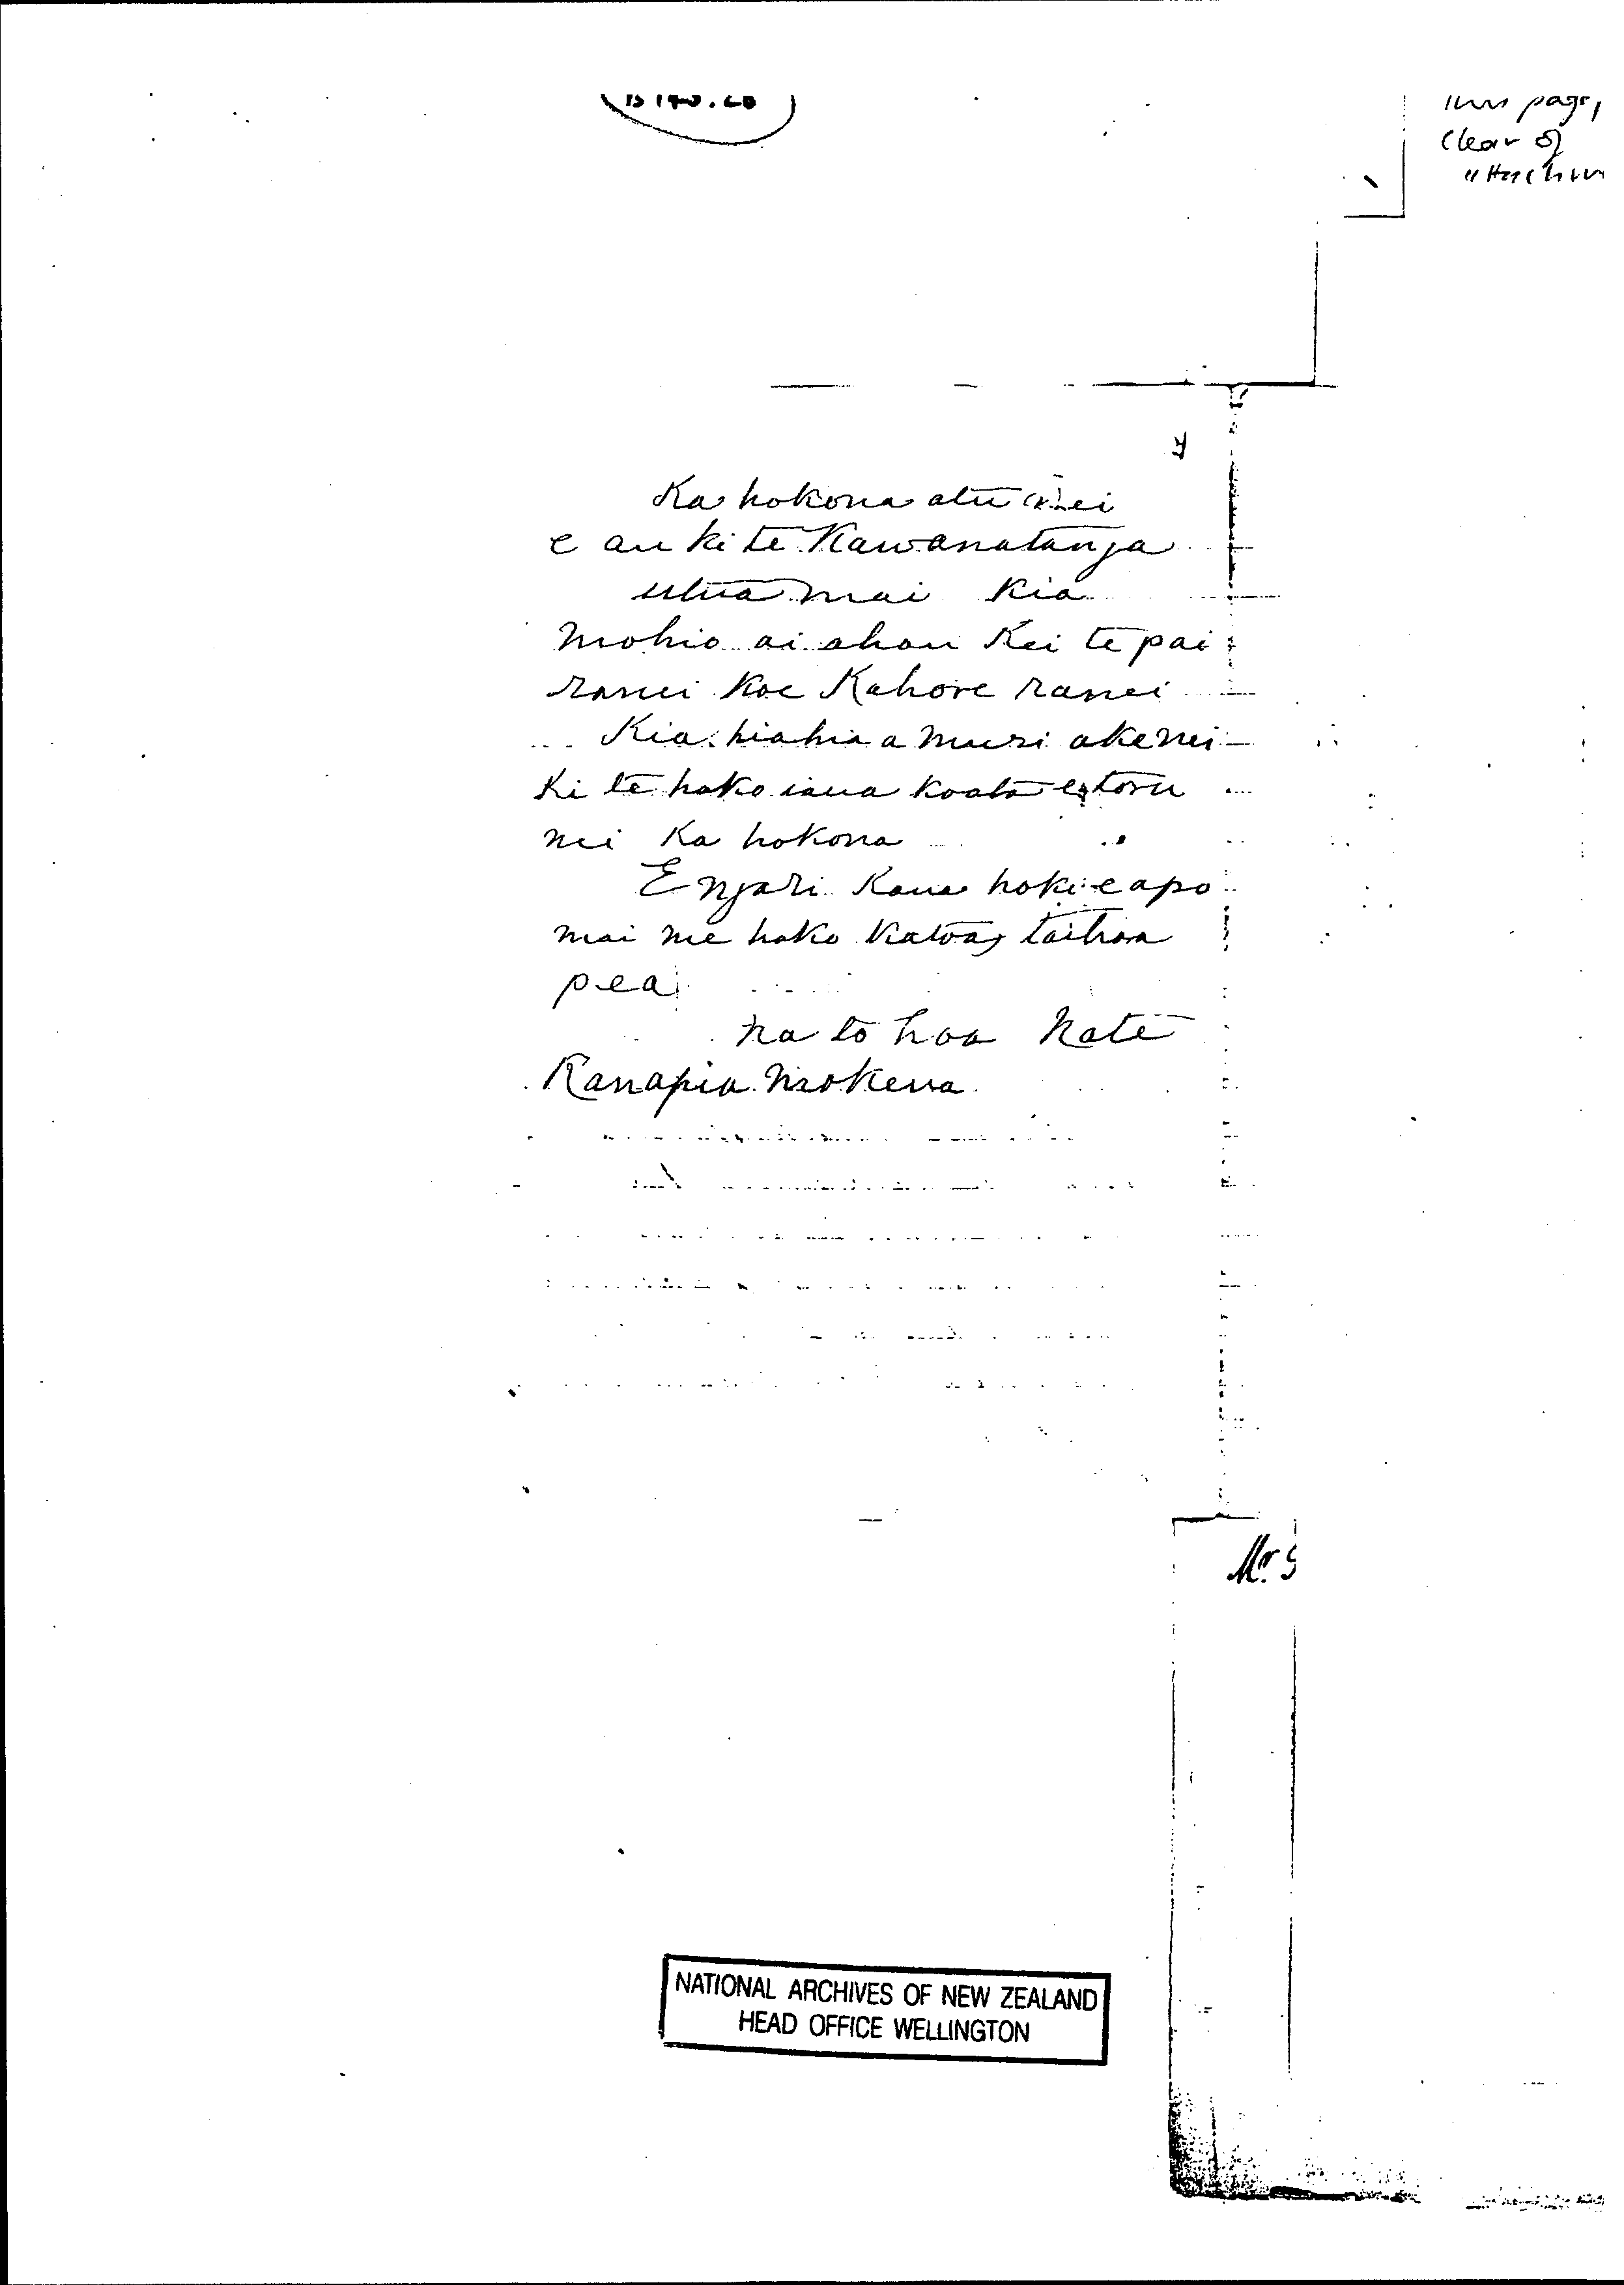 this page,
clear of
Ka hokona atu nei
e au ki te Kawanatanga
utua mai kia
mohio ai ahau Kei te pai
ranei koe Kahore ranei
Kia hiahia a muri ake nei
ki te hoko iana koata e toru
nei ka hokona
Engari kaua hoki e apo
mai me hoko katoa, taihoa
pea
na to hoa
Kanapia Mokena
Mr. S
NATIONAL ARCHIVES OF NEW ZEALAND
HEAD OFFICE WELLINGTON